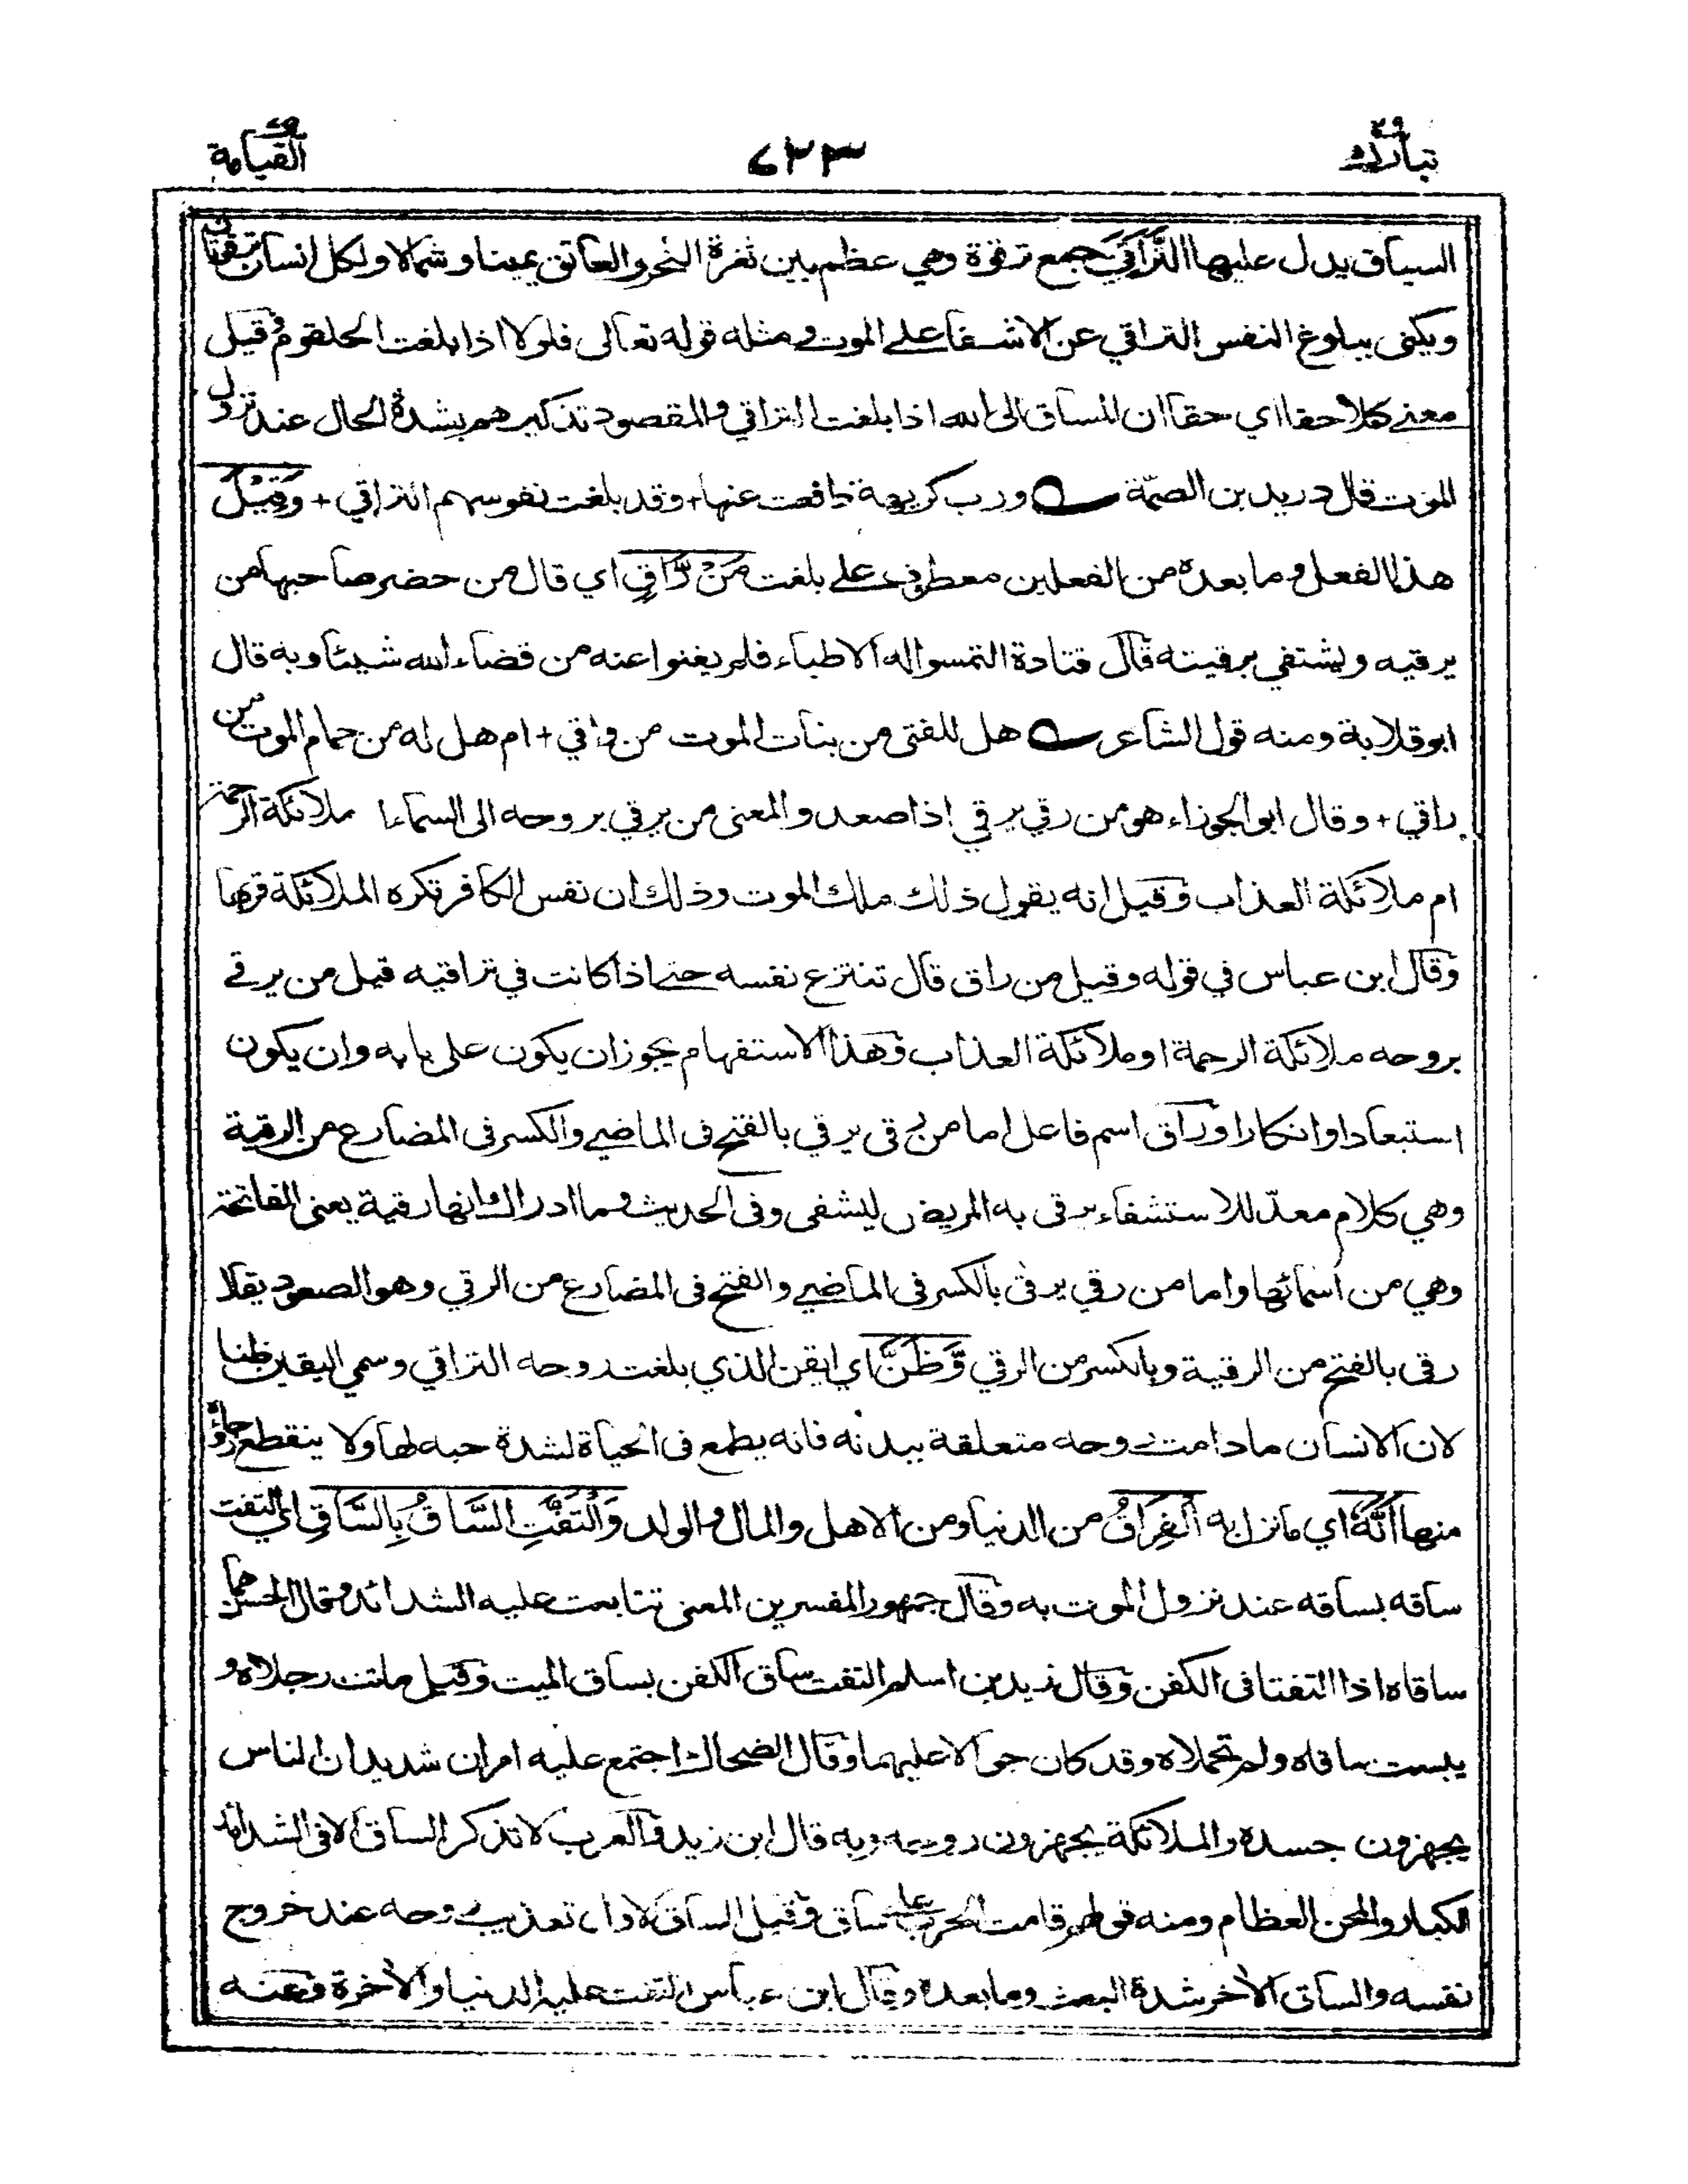 تبارك ٢٩
٦٢٣
القيامة ٧٥
السياق يدل عليها التَّرَاقِيَ جمع ترقوة وهي عظم بين ثغرة النحر والعاتق يمينا وشمالا ولكل انسان ترقوتان
ويكنى ببلوغ النفس التراقي عن الاشفاء على الموت ومثله قوله تعالى فلولا اذا بلغت الحلقوم وقيل
معنى كلا حقا اي حقا ان المساق الى الله اذا بلغت التراقي والمقصود تذكيرهم بشدة الحال عند نزول
الموت قال دريد بن الصمّة ــه ورب كريهة دافعت عنها + وقد بلغت نفوسهم التراقي + وَقِيْلَ
هذا الفعل وما بعده من الفعلين معطوف على بلغت مَنْ رَّاقٍ اي قال من حضر صاحبها من
يرقيه ويشتفي برقيته قال قتادة التمسوا له الاطباء فلم يغنوا عنه من قضاء الله شيئا وبه قال
ابو قلابة ومنه قول الشاعر ــه هل للفتى من بنات الموت من واقي + ام هل له من حمام الموت من
راقي + وقال ابو الجوزاء هو من رقي يرقي اذا صعد والمعنى من يرقي بروحه الى السماء ا ملائكة الرحمة
ام ملائكة العذاب وقيل انه يقول ذلك ملك الموت وذلك ان نفس الكافر تكره الملائكة قربها
وقال ابن عباس في قوله وقيل من راق قال تنتزع نفسه حتى اذا كانت في تراقيه قيل من يرقى
بروحه ملائكة الرحمة او ملائكة العذاب وهذا الاستفهام يجوز ان يكون على بابه وان يكون
استبعادا وانكارا وراق اسم فاعل اما من رقى يرقي بالفتح فى الماضي والكسر فى المضارع من الرقية
وهي كلام معدّ للاستشفاء يرقى به المريض ليشفى وفى الحديث وما ادراك انها رقية يعنى الفاتحة
وهي من اسمائها واما من رقي يرقى بالكسر فى الماضي والفتح فى المضارع من الرقي وهو الصعود يقال
رقى بالفتح من الرقية وبالكسر من الرقي وَّظَنَّ اي ايقن الذي بلغت روحه التراقي وسمي اليقين ظنا
لان الانسان ما دامت روحه متعلقة ببدنه فانه يطمع فى الحياة لشدة حبه لها ولا ينقطع رجاؤه
منها اَنَّهُ اي ما نزل به الْفِرَاقُ من الدنيا ومن الاهل والمال والولد وَالْتَفَّتِ السَّاقُ بِالسَّاقِ اي التفت
ساقه بساقه عند نزول الموت به وقال جمهور المفسرين المعنى تتابعت عليه الشدائد وقال الحسن هما
ساقاه اذا التفتا فى الكفن وقال زيد بن اسلم التفت ساق الكفن بساق الميت وقيل ماتت رجلاه و
يبست ساقاه ولم تحملاه وقد كان جوالا عليهما وقال الضحاك اجتمع عليه امران شديدان الناس
يجهزون جسده والملائكة يجهزون روحه وبه قال ابن زيد والعرب لا تذكر الساق الا فى الشدائد
الكبار والمحن العظام ومنه قولهم قامت الحرب على ساق وقيل الساق الاول تعذيب روحه عند خروج
نفسه والساق الاخر شدة البعث وما بعده وقال ابن عباس التفت عليه الدنيا والاخرة وعنه